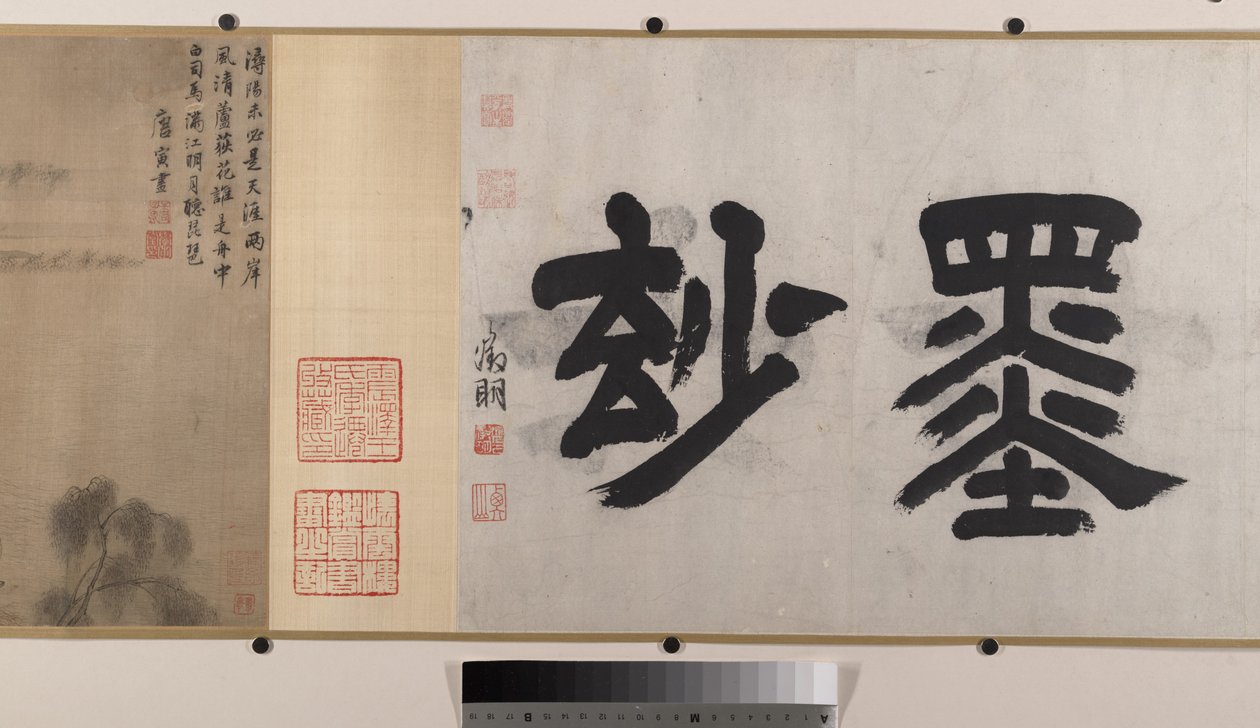 墨玅
徵明
潯陽未必是天涯兩岸
風清蘆荻花誰是舟中
白司馬滿江明月聽琵琶
唐寅畫
A 1 2 3 4 5 6 M 8 9 10 11 12 13 14 15 B 17 18 19